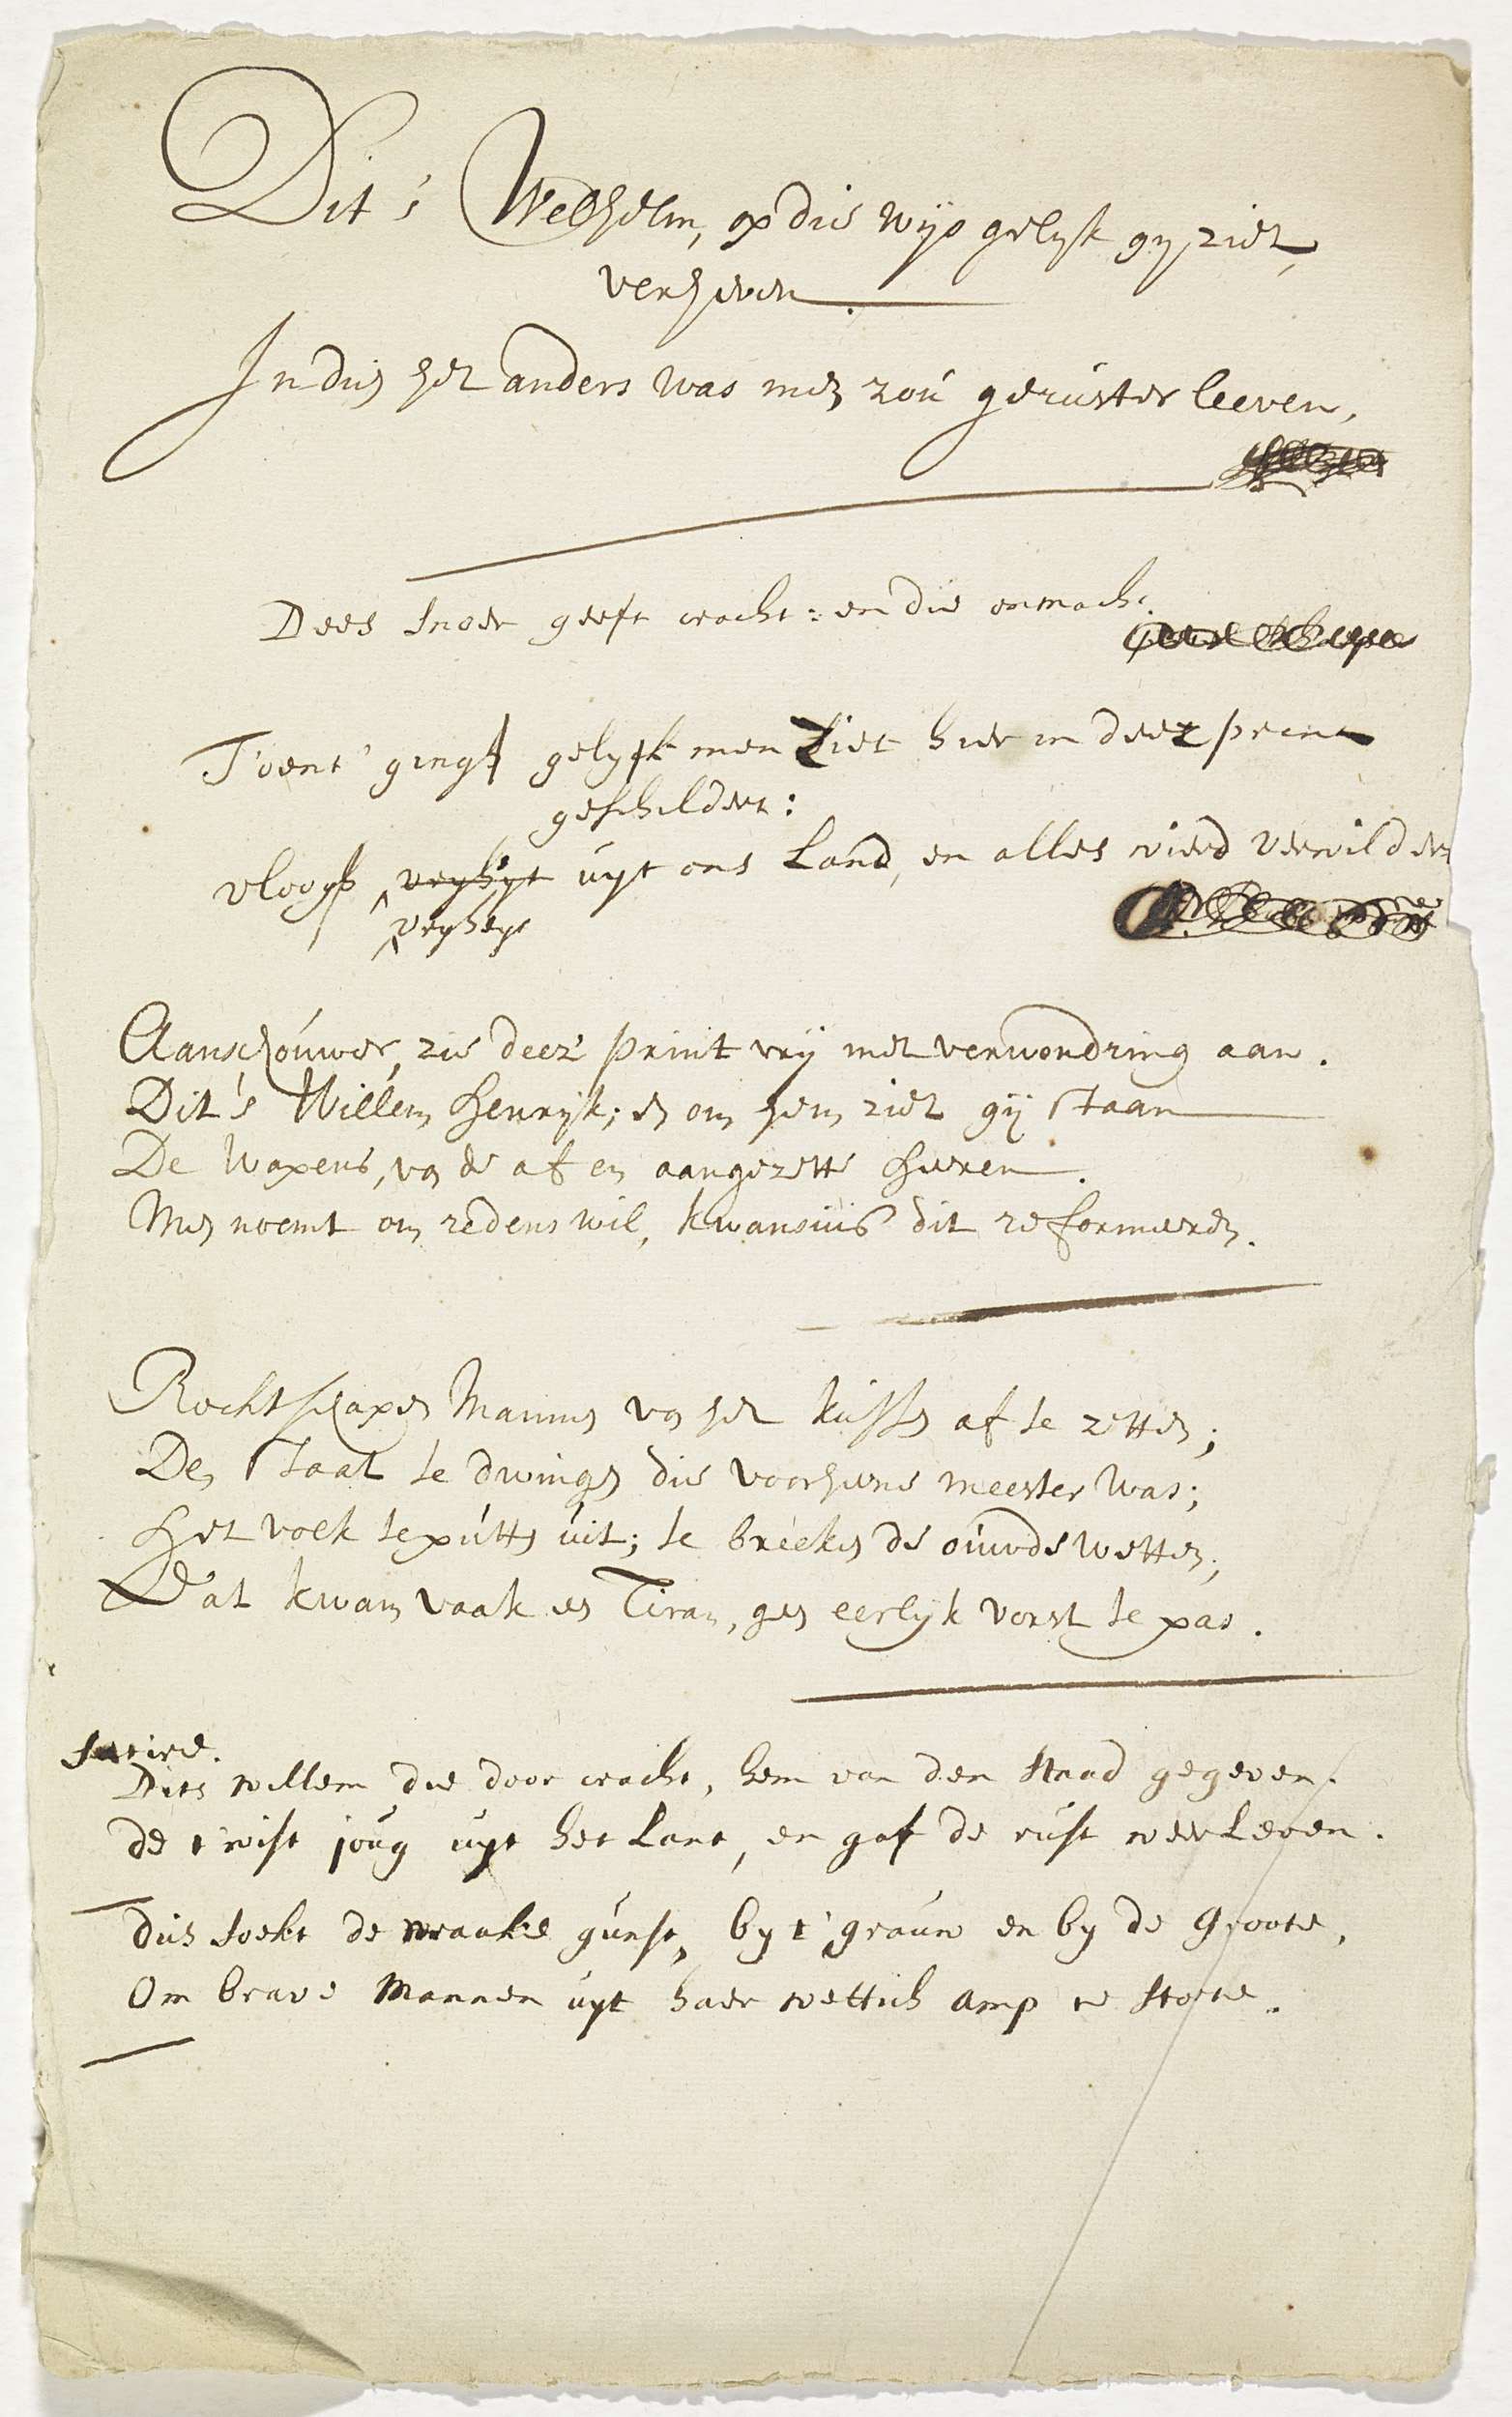 Dit's Welhelm, op die wijs gelijk gy ziet,
verheven.
Indien het anders was men zou geruster leeven,
Dees snoer geeft cracht: en die onmacht.
T'oent' gingh gelyck men Ziet hier in deez prent
geschildert:
vloogh vryheyt uyt ons Land, en alles wierd verwildert
vryheyt
Aanschouwer, zie deez' print vrij met verwondring aan.
Dit's Willem Henrijk; en om hem ziet gij staan
De Wapens, van de af en aangezette Heeren.
Men noemt om redens wil, kwansuis dit reformeren.
Rechtschapen Mannen van het kussen af te zetten;
Den staat te dwingen die voorheene meester was;
Het volk te putten uit; te breeken de oude wetten;
Dat kwam vaak een Tiran, geen eerlijk vorst te pas.
Satire.
Dits willem die door cracht, hem van den Staad gegeven.
de twist joug uyt het Lant, en gaf de rust weer Leven.
dus soekt de wraake gunst, by t' graun en by de Groote,
Om brave Mannen uyt haer wettich amp te stoote.